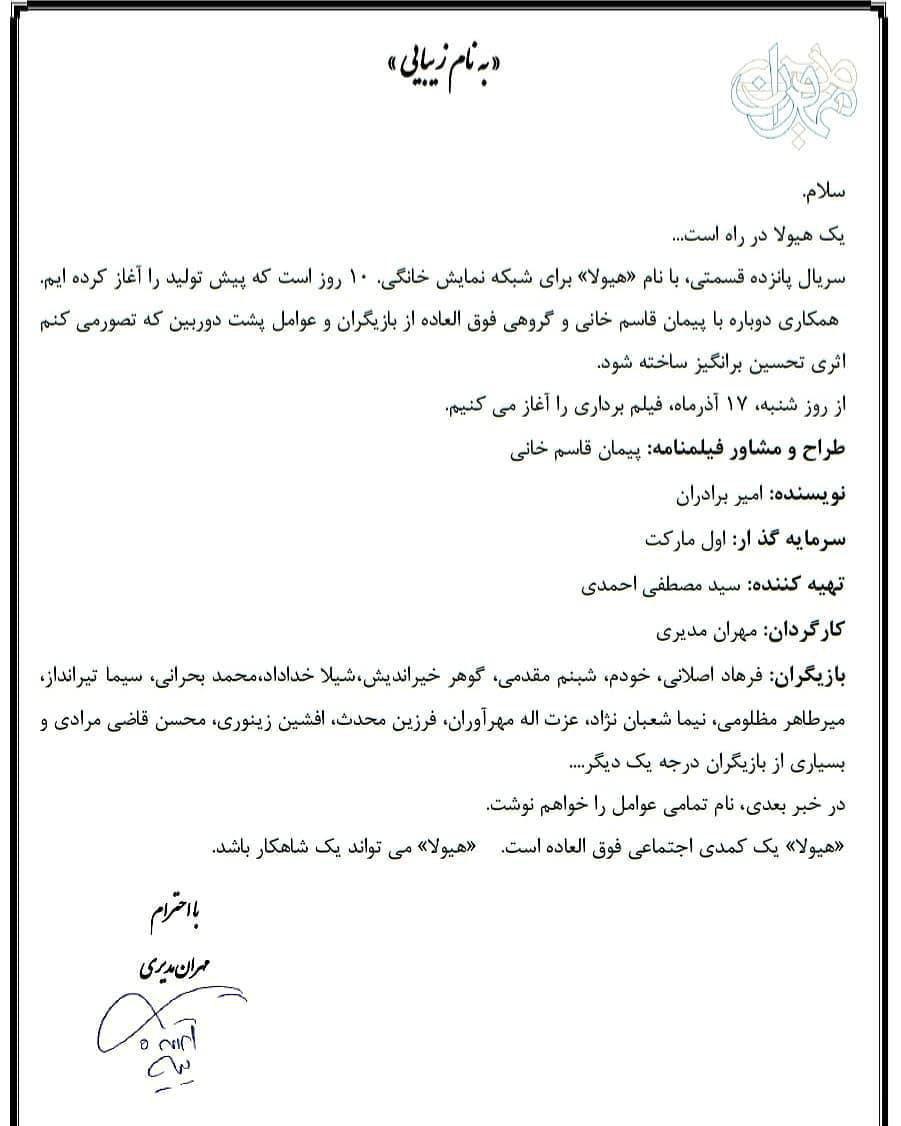 «به نام زیبایی»
سلام.
یک هیولا در راه است...
سریال پانزده قسمتی، با نام «هیولا» برای شبکه نمایش خانگی. ۱۰ روز است که پیش تولید را آغاز کرده ایم.
همکاری دوباره با پیمان قاسم خانی و گروهی فوق العاده از بازیگران و عوامل پشت دوربین که تصورمی کنم
اثری تحسین برانگیز ساخته شود.
از روز شنبه، ۱۷ آذرماه، فیلم برداری را آغاز می کنیم.
طراح و مشاور فیلمنامه: پیمان قاسم خانی
نویسنده: امیر برادران
سرمایه گذ ار: اول مارکت
تهیه کننده: سید مصطفی احمدی
کارگردان: مهران مدیری
بازیگران: فرهاد اصلانی، خودم، شبنم مقدمی، گوهر خیراندیش،شیلا خداداد،محمد بحرانی، سیما تیرانداز،
میرطاهر مظلومی، نیما شعبان نژاد، عزت اله مهرآوران، فرزین محدث، افشین زینوری، محسن قاضی مرادی و
بسیاری از بازیگران درجه یک دیگر....
در خبر بعدی، نام تمامی عوامل را خواهم نوشت.
«هیولا» یک کمدی اجتماعی فوق العاده است. «هیولا» می تواند یک شاهکار باشد.
با احترام
مهران مدیری